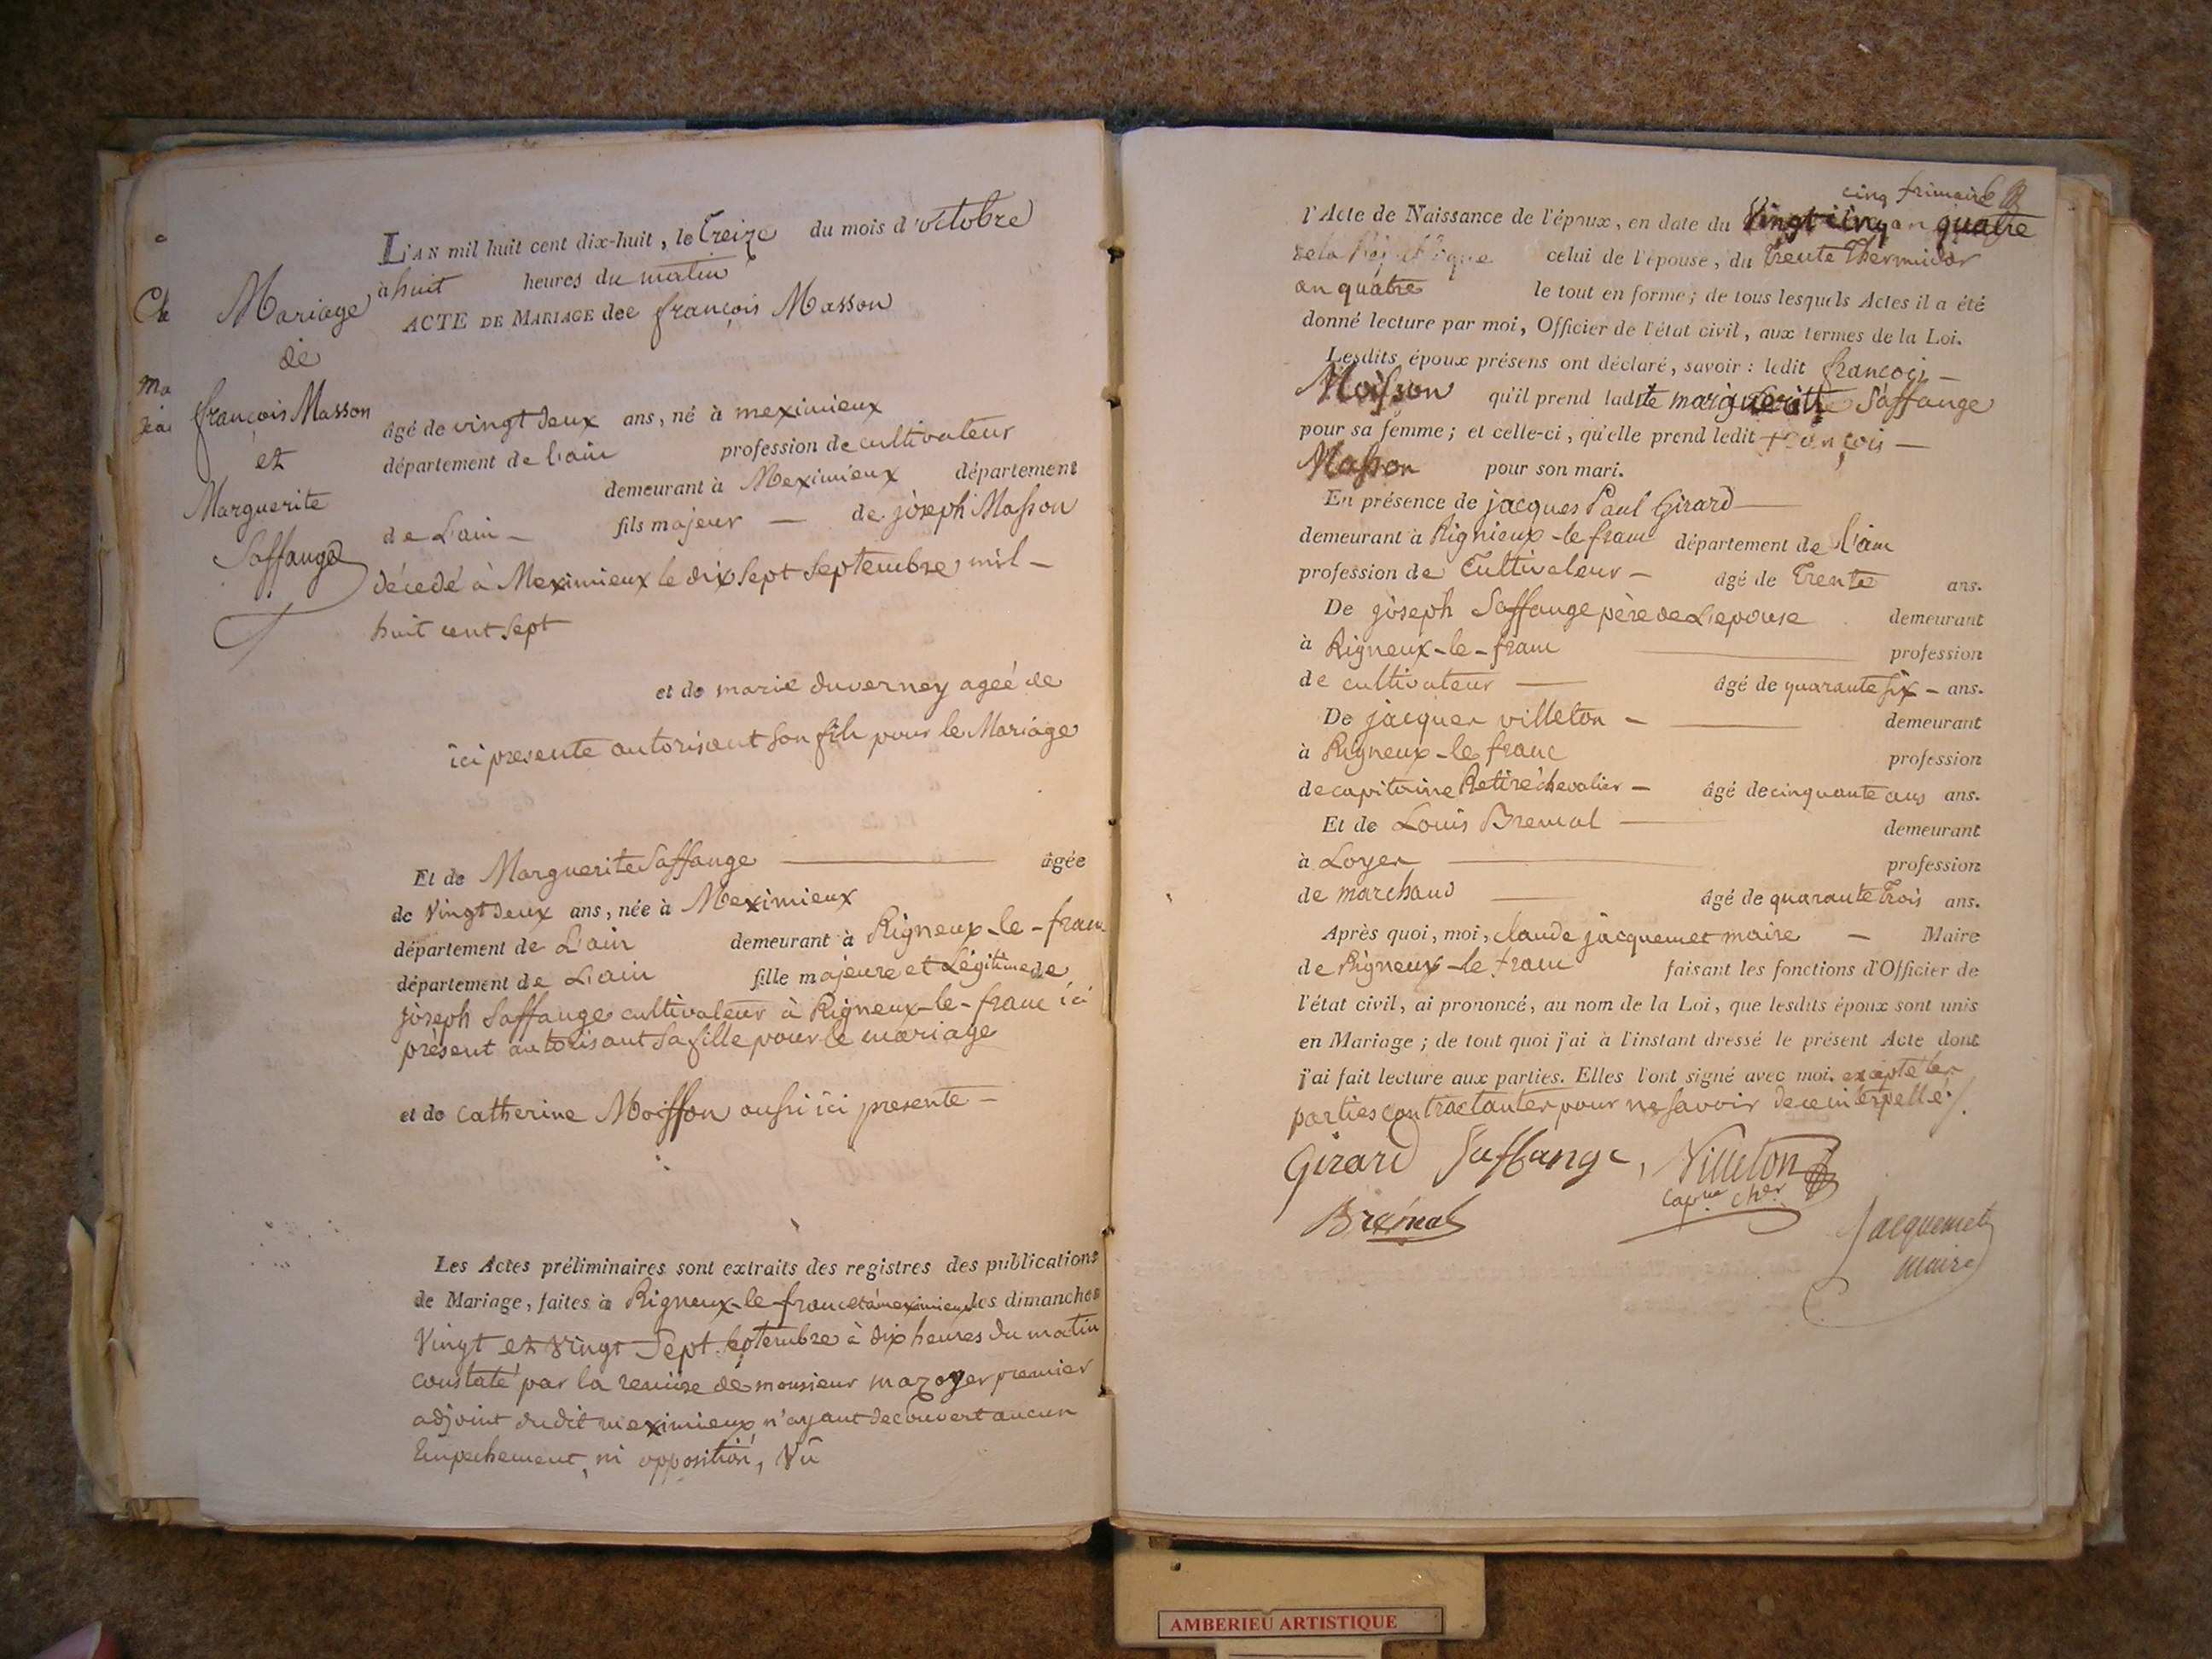 L'AN mil huit cent dix-huit, le Treize du mois d'octobre
à huit heures du matin
ACTE DE MARIAGE de françois Masson
Mariage
de
françois Masson
et
Marguerite
Saffange
Ch
Ma
agé de vingt deux ans, né à meximieux
département de l'ain profession de cultivateur
demeurant à Meximieux département
de L'ain fils majeur — de joseph Masson
décedé à Meximieux le dix sept septembre mil —
huit cent sept
et de marie duverney ageé de
ici presente autorisant son fils pour le Mariage
Et de Marguerite Saffange âgée
de Vingt deux ans, née à Meximieux
département de L'ain demeurant à Rigneux-le-franc
département de L'ain fille majeure et Légitime de
joseph Saffange cultivateur à Rigneux-le-franc ici
présent autorisant sa fille pour le mariage
et de catherine Moisson aussi ici presente —
Les Actes préliminaires sont extraits des registres des publications
de Mariage, faites à Rigneux-le-franc et à meximieux les dimanches
Vingt et Vingt Sept Septembre à dix heures du matin
constaté par la remise de monsieur mazoyer premier
adjoint dudit meximieux n'ayant decouvert aucun
Empechement, ni opposition, Vû
cinq frimaire
l'Acte de Naissance de l'époux, en date du Vingt cinq an quatre
de la République celui de l'épouse, du trente Thermidor
an quatre le tout en forme; de tous lesquels Actes il a été
donné lecture par moi, Officier de l'état civil, aux termes de la Loi.
Lesdits époux présens ont déclaré, savoir: ledit françois —
Masson qu'il prend ladite marguerite Saffange
pour sa femme; et celle-ci, qu'elle prend ledit françois —
Masson pour son mari.
En présence de jacques Paul Girard
demeurant à Rignieux-le franc département de l'ain
profession de Cultivateur — âgé de Trente ans.
De joseph Saffange père de L'epouse demeurant
à Rigneux-le-franc profession
de cultivateur — âgé de quarante six — ans.
De jacques villeton — demeurant
à Rigneux-le franc profession
de capitaine Retiré chevalier — âgé de cinquante ans ans.
Et de Louis Bremal demeurant
à Loyes profession
de marchand âgé de quarante trois ans.
Après quoi, moi, claude jacquemet maire — Maire
de Rigneux-le franc faisant les fonctions d'Officier de
l'état civil, ai prononcé, au nom de la Loi, que lesdits époux sont unis
en Mariage; de tout quoi j'ai à l'instant dressé le présent Acte dont
j'ai fait lecture aux parties. Elles l'ont signé avec moi. excepté les
parties contractantes pour ne savoir de ce interpellé
Girard Saffange, Villeton
capne cher
Brémal
Jacquemet
maire
AMBERIEU ARTISTIQUE